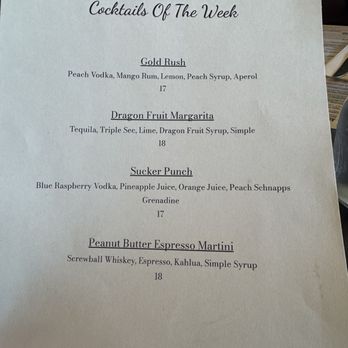 Cocktails Of The Week
Gold Rush
Peach Vodka, Mango Rum, Lemon, Peach Syrup, Aperol
17
Dragon Fruit Margarita
Tequila, Triple Sec, Lime, Dragon Fruit Syrup, Simple
18
Sucker Punch
Blue Raspberry Vodka, Pineapple Juice, Orange Juice, Peach Schnapps
Grenadine
17
Peanut Butter Espresso Martini
Screwball Whiskey, Espresso, Kahlua, Simple Syrup
18